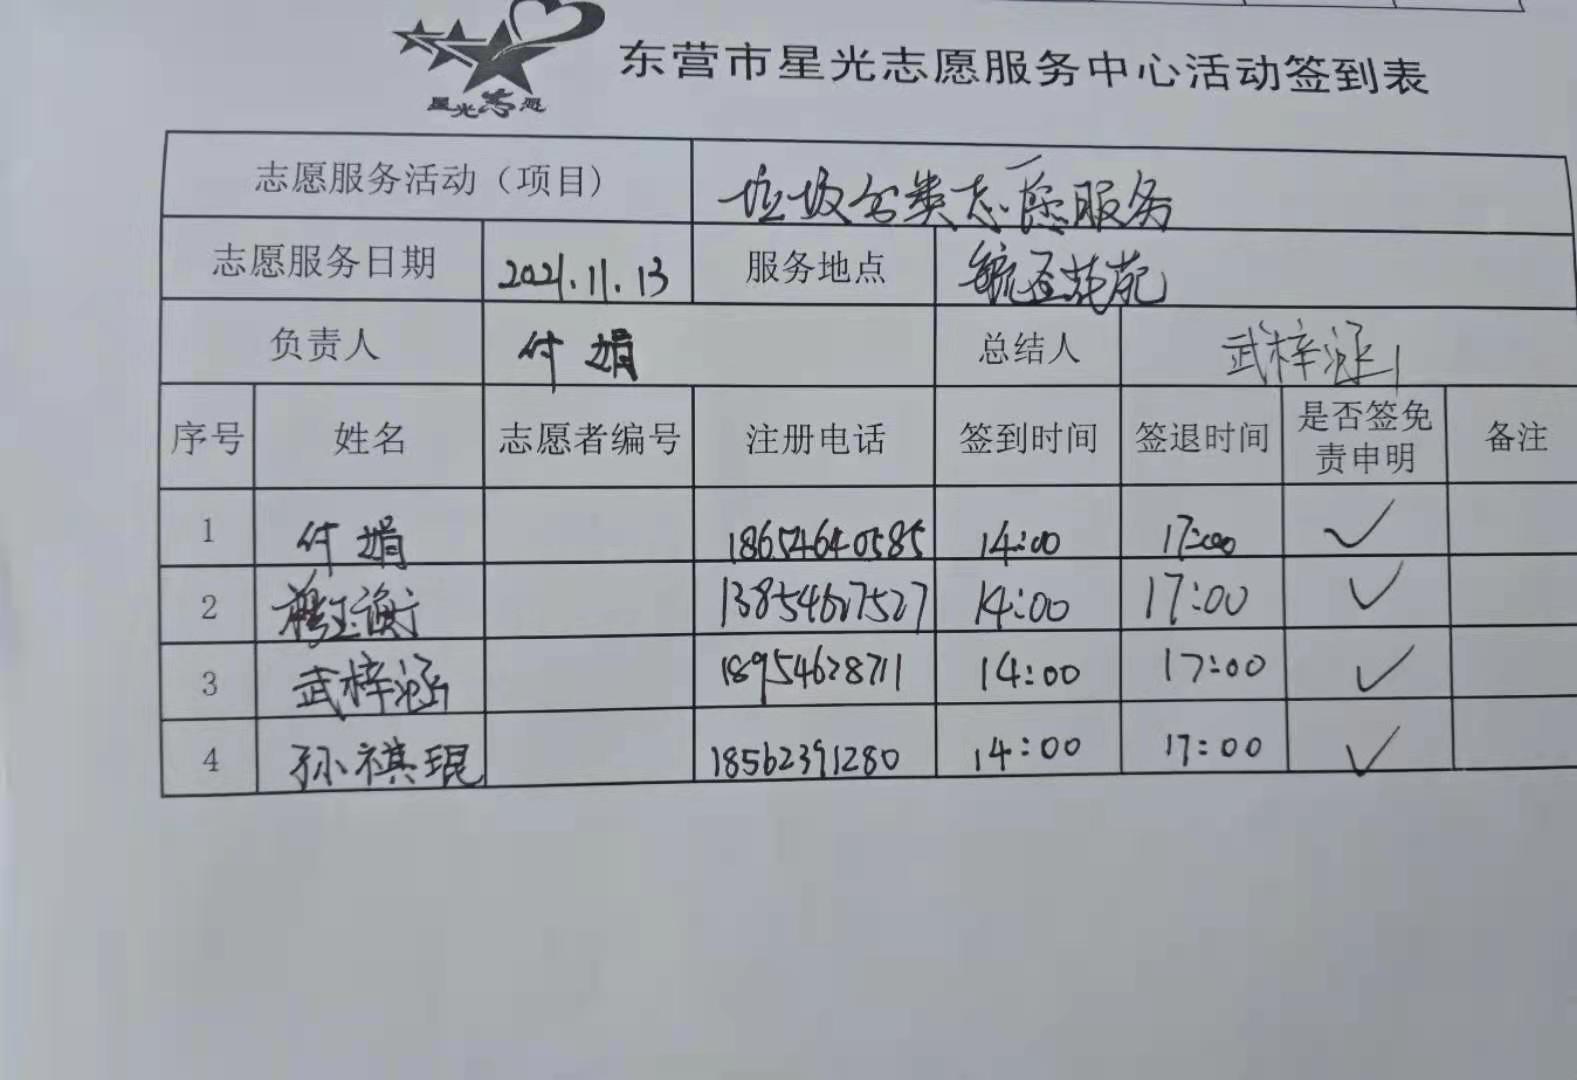 星光志愿
东营市星光志愿服务中心活动签到表
志愿服务活动（项目） 垃圾分类志愿服务
志愿服务日期 2021.11.13 服务地点 苑
负责人 付娟 总结人 武梓涵
序号 姓名 志愿者编号 注册电话 签到时间 签退时间 是否签免责申明 备注
1 付娟 18654640585 14:00 17:00 ✓
2 13854627527 14:00 17:00 ✓
3 武梓涵 18954628711 14:00 17:00 ✓
4 孙祺琨 18562391280 14:00 17:00 ✓